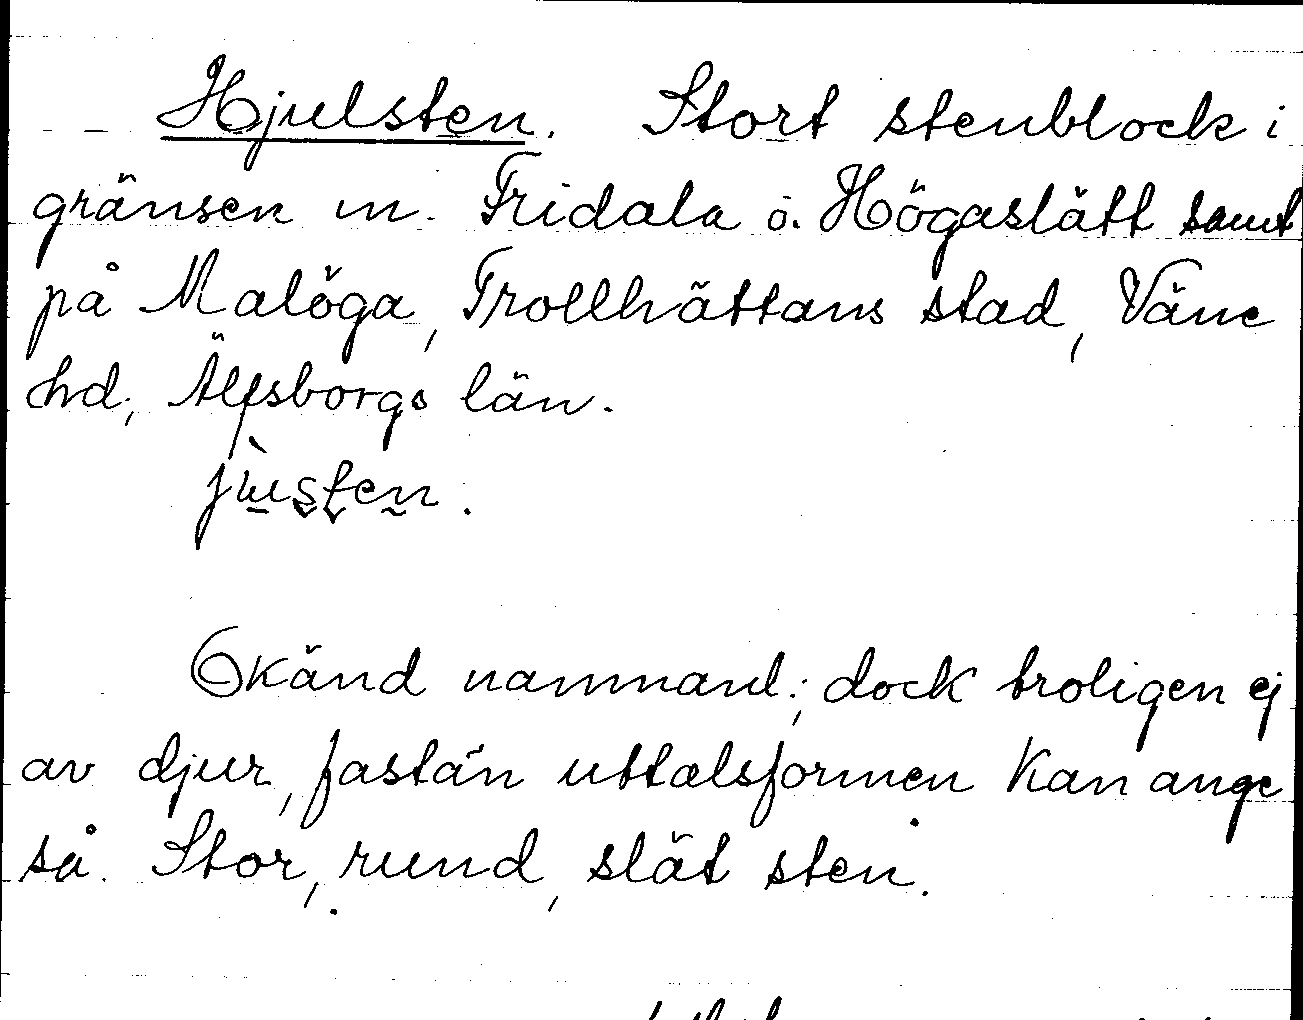 Hjulsten. Stort stenblock i
gränsen m. Fridala o. Högaslätt samt
på Malöga, Trollhättans stad, Väne
hd, Älfsborgs län.
jùsten.
Okänd namnanl.; dock troligen ej
av djur, fastän uttalsformen kan ange
så. Stor, rund, slät sten.